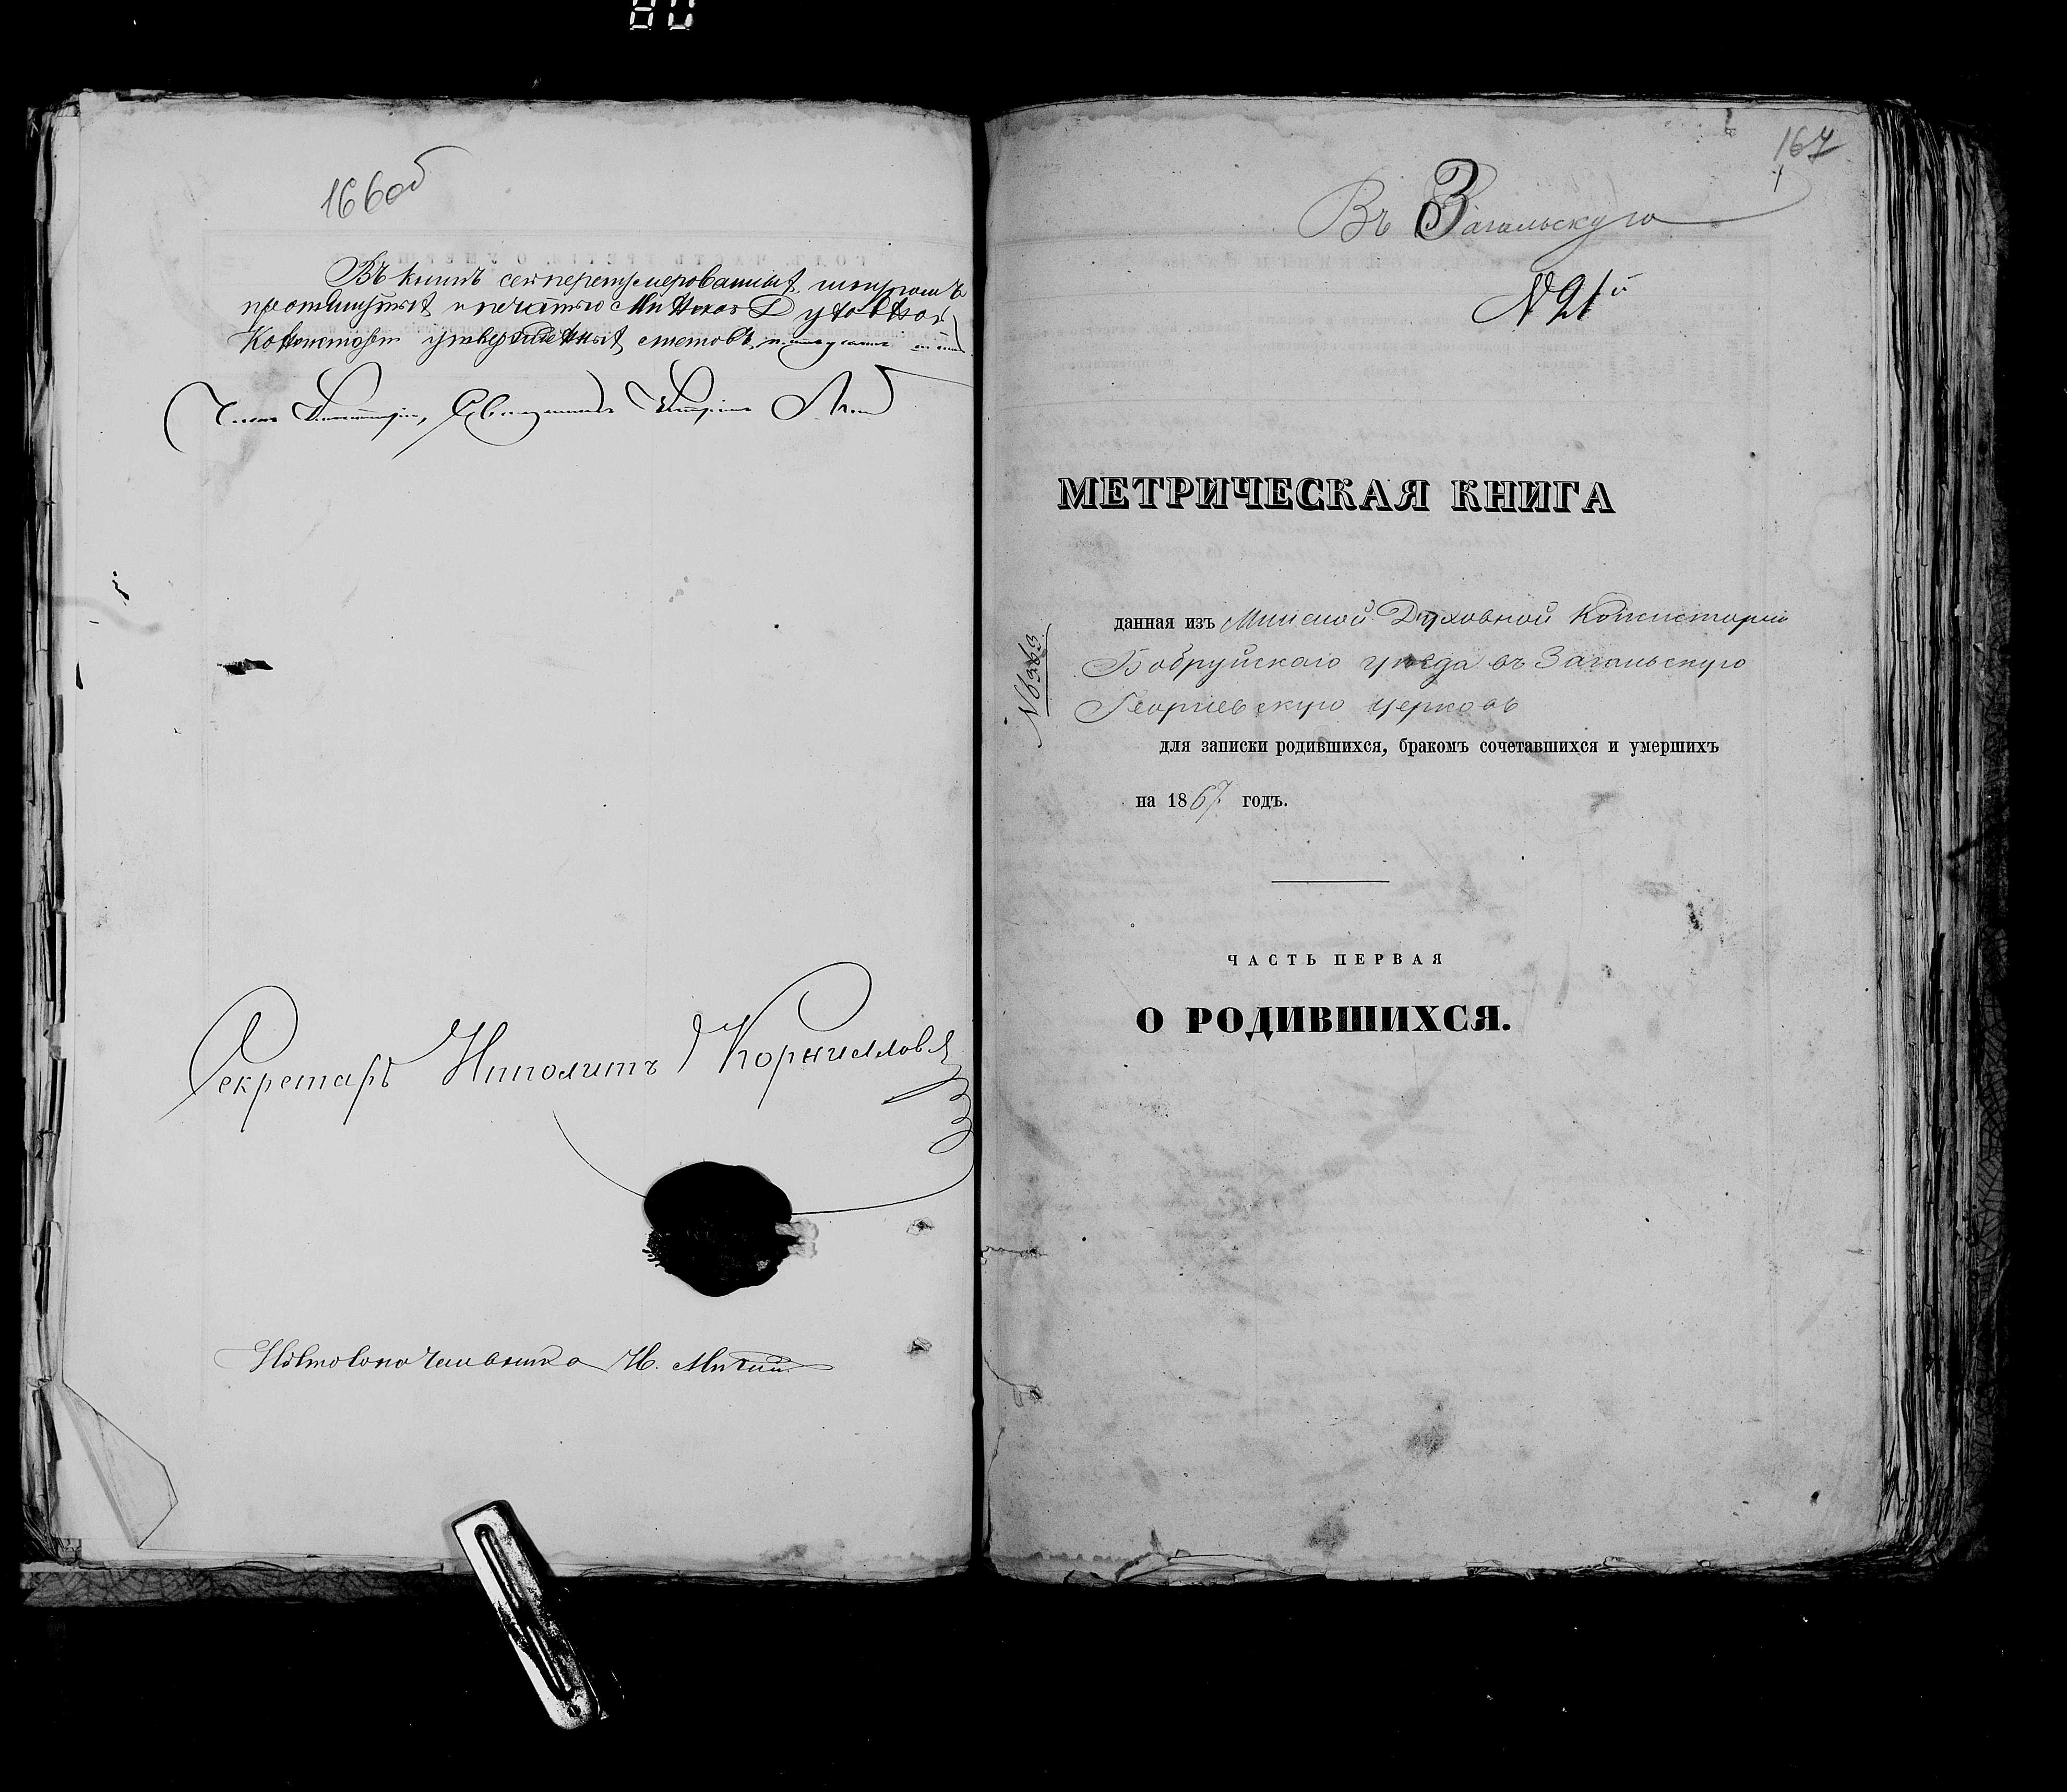 80
166 об
Въ книгѣ сей перенумерованныхъ, шнуромъ
протянутыхъ и печатью Минской Духовной
Консисторіи утвержденныхъ листовъ
Членъ Консисторіи, Священникъ
Секретарь Ипполитъ Корниллов
Н. Мигай
167
Въ Загальскую
№ 21й
МЕТРИЧЕСКАЯ КНИГА
данная изъ Минской Духовной Консисторіи
Бобруйскаго уѣзда въ Загальскую
Георгіевскую церковь
для записки родившихся, бракомъ сочетавшихся и умершихъ
на 1867. годъ.
ЧАСТЬ ПЕРВАЯ
О РОДИВШИХСЯ.